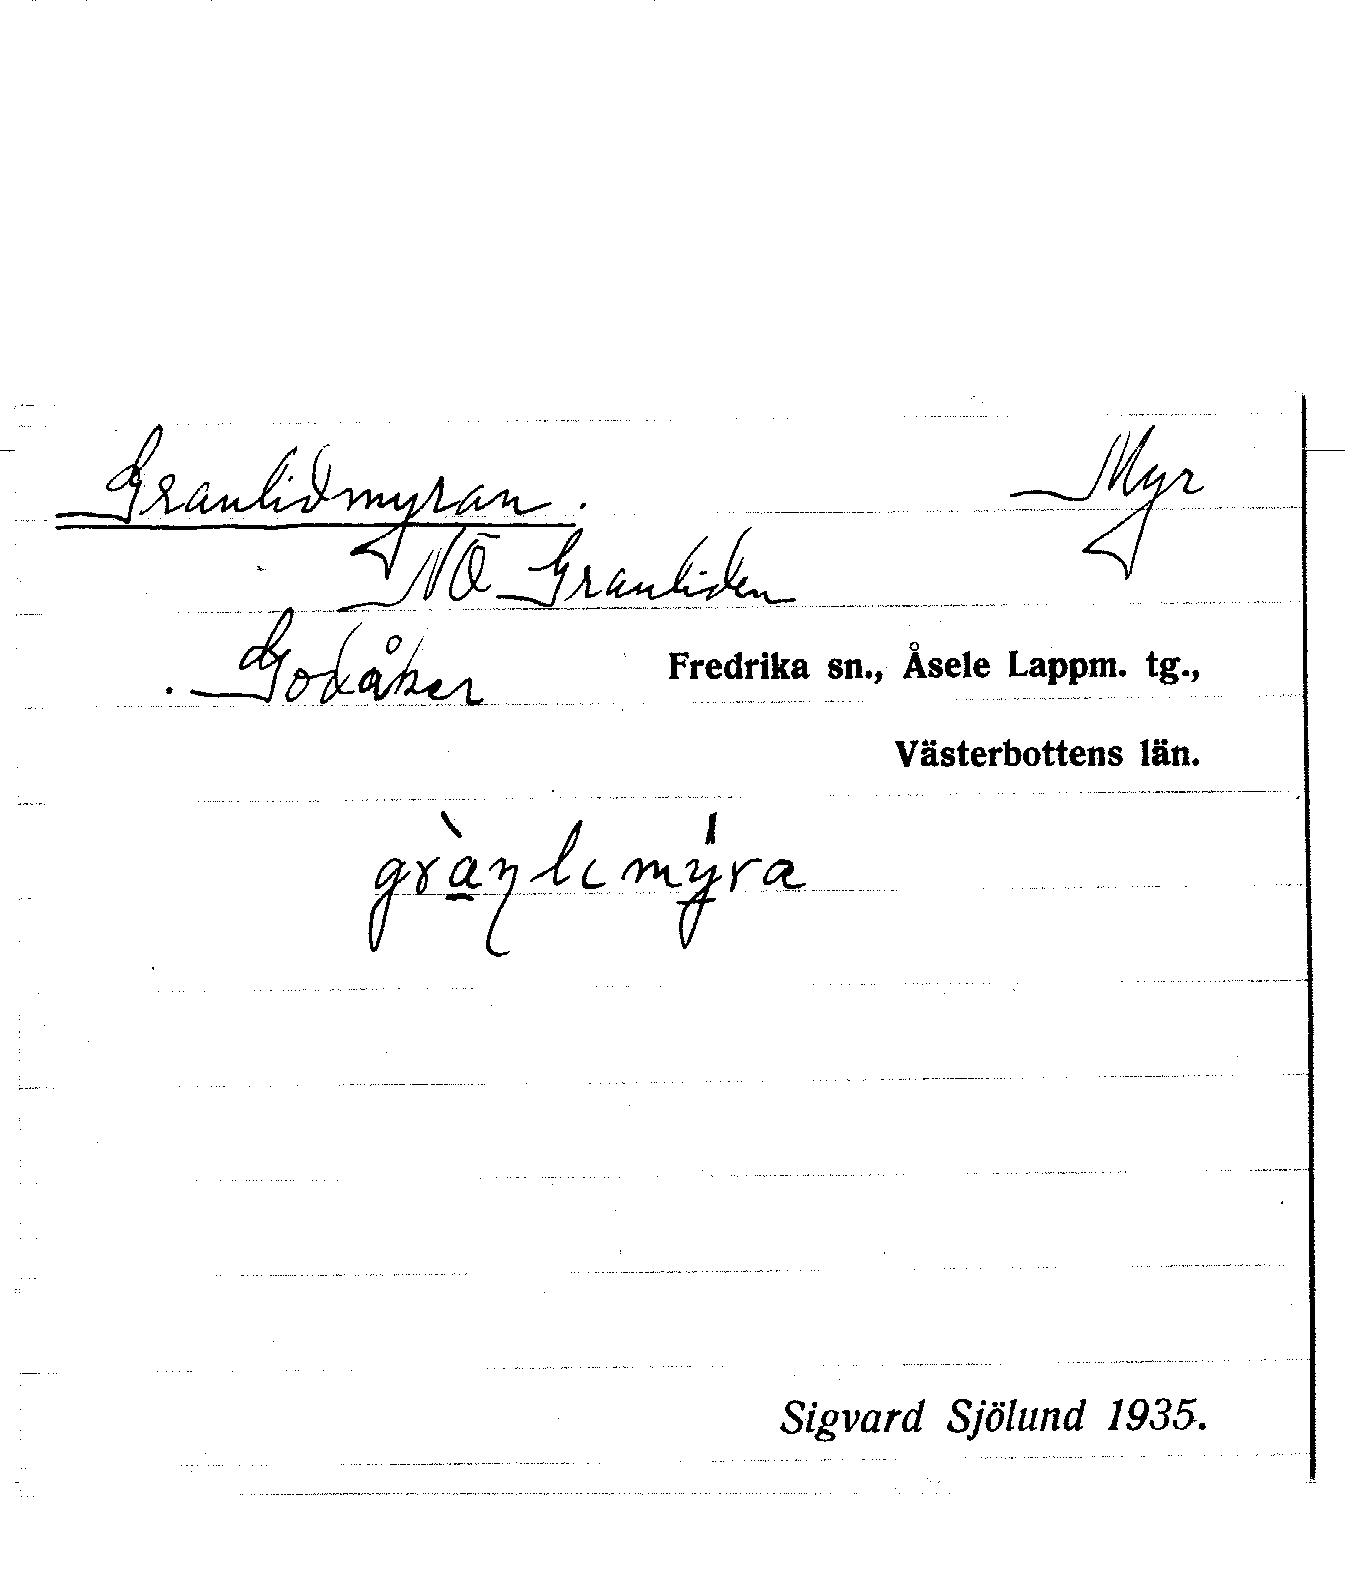 Granlidmyran. Myr
NÖ Granliden
Godåker Fredrika sn., Åsele Lappm. tg.,
Västerbottens län.
Sigvard Sjölund 1935.